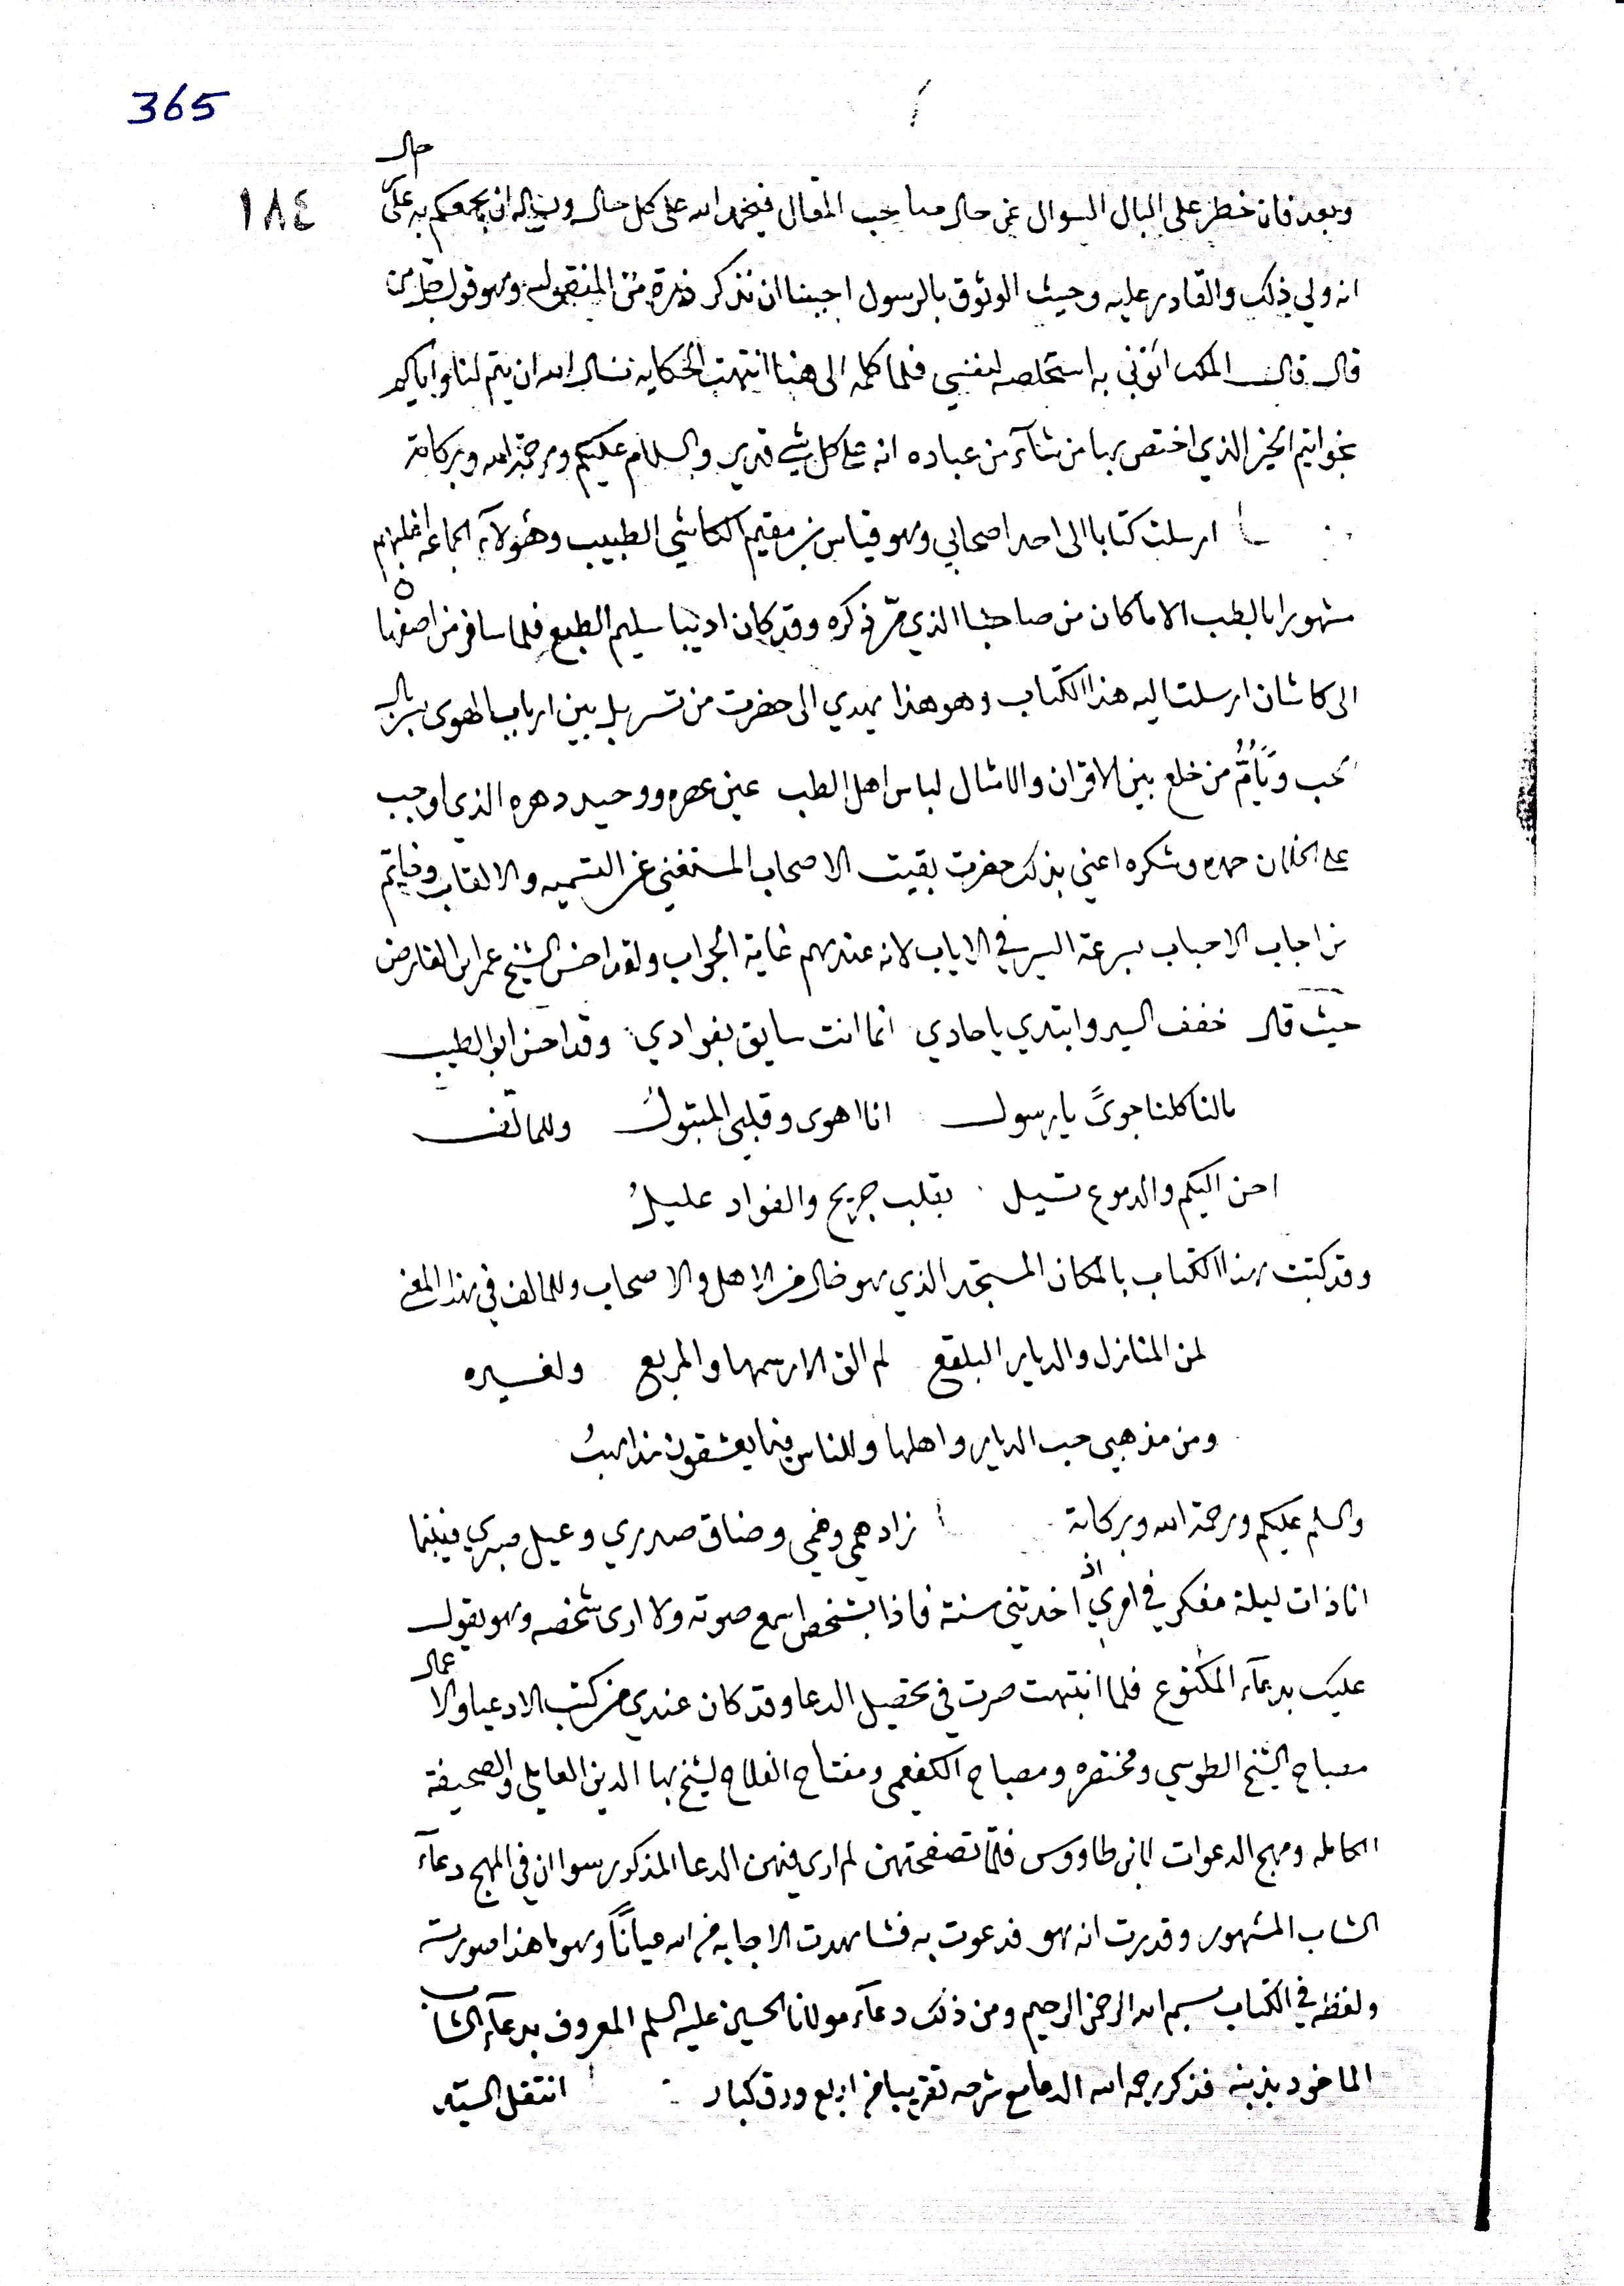 365
١٨٤
وبعد فان خطر على البال السوال عن حال صاحب المقال فيحمد الله على كل حال ويساله ان يجمعكم به على حال
انه ولي ذلك والقادر عليه وحيث الوثوق بالرسول اجبنا ان نذكر ذرة من المنقول وهو قول من
قال قال الملك ائتوني به استخلصه لنفسي فلما كلمه الى هنا انتهت الحكايه نسال الله ان يتم لنا واياكم
بخواتيم الخير الذي اختص بها من شآء من عباده انه على كل شي قدير والسلام عليكم ورحمة الله وبركاته
ارسلت كتابا الى احد اصحابي وهو قياس بن مقيم الكاشي الطبيب وهولآء الجماعه اغلبهم
مشهورا بالطب الا ما كان من صاحبنا الذي مرّ ذكره وقد كان اديبا سليم الطبع فلما سافر من اصفها ه
الى كاشان ارسلت اليه هذا الكتاب وهو هذا يهدي الى حضرت من تسربل بين ارباب الهوى بسربال
الحب ويَأُمُّ من خلع بين الاقران والامثال لباس اهل الطب عين عصره ووحيد دهره الذي اوجب
على الخلان حمده وشكره اعني بذلك حضرت بقيت الاصحاب المستغني عن التسميه والالقاب
من اجاب الاحباب بسرعة السير في الاياب لانه عندهم غاية الجواب ولقد احسن الشيخ عمر ابن الفارض
حيث قال خفف السير وابتدي يا حادي انما انت سايق بفوادي وقد احسن ابو الطيب
مالنا كلنا جوىً يا رسول انا اهوى وقلبي المتبولُ وللمالف
احن اليكم والدموع تسيل بقلب جريح والفواد عليلُ
وقد كتبت هذا الكتاب بالمكان المستجد الذي هو خال من الاهل والاصحاب وللمالف في هذا المعنى
لمن المنازل والديار البلقع لم الق الا رسمها والمربع ولغيره
ومن مذهبي حب الديار واهلها وللناس فيما يعشقون مذاهبُ
والسلم عليكم ورحمة الله وبركاته زاد همي وغمي وضاق صدري وعيل صبري فبينما
انا ذات ليلة مفكر في امري اذ اخدتني سنة فاذا بشخص اسمع صوته ولا ارى شخصه وهو يقول
عليك بدعآء المكنوع فلما انتبهت صرت في تحصيل الدعا وقد كان عندي من كتب الادعيا والاعمال
مصباح الشيخ الطوسي ومختصره ومصباح الكفعمي ومفتاح الفلاح لشيخ بها الدين العاملي والصحيفة
الكامله ومهج الدعوات لابن طاووس فلمّا تصفحتهن لم ارى فيهن الدعا المذكور سوا ان في المهج دعآء
الشاب المشهور وقدرت انه هو فدعوت به فشاهدت الاجابه من الله عياناً وهو ما هذا صورته
ولفظه في الكتاب بسم الله الرحمن الرحيم ومن ذلك دعآء مولانا الحسين عليه السلم المعروف بدعآء الشاب
الماخود بذنبه فذكر رحمه الله الدعا مع شرحه تقريبا من اربع ورق كبار انتقل السيّد